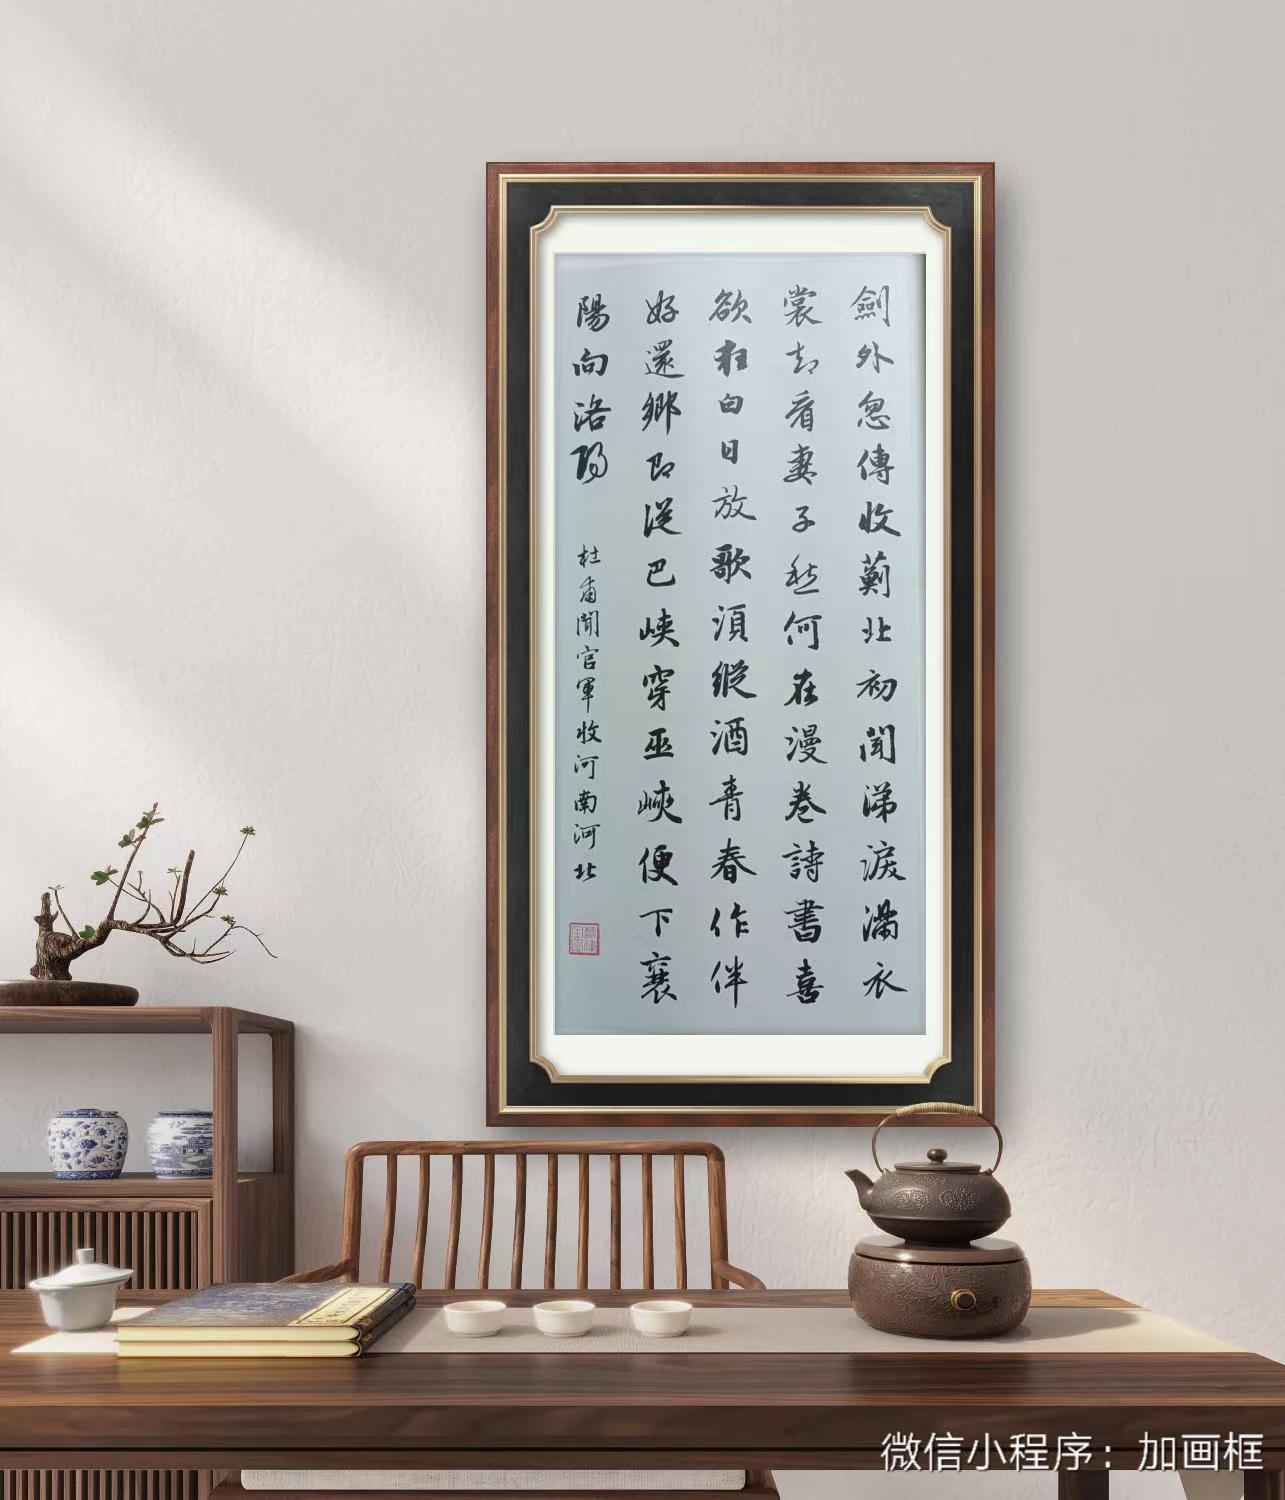 劍外忽傳收薊北初聞涕淚滿衣
裳却看妻子愁何在漫卷詩書喜
欲狂白日放歌須縱酒青春作伴
好還鄉即從巴峽穿巫峽便下襄
陽向洛陽
杜甫聞官軍收河南河北
微信小程序：加画框